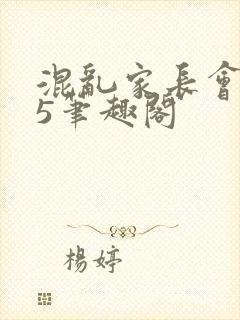 混亂家長會
5筆趣閣
楊婷